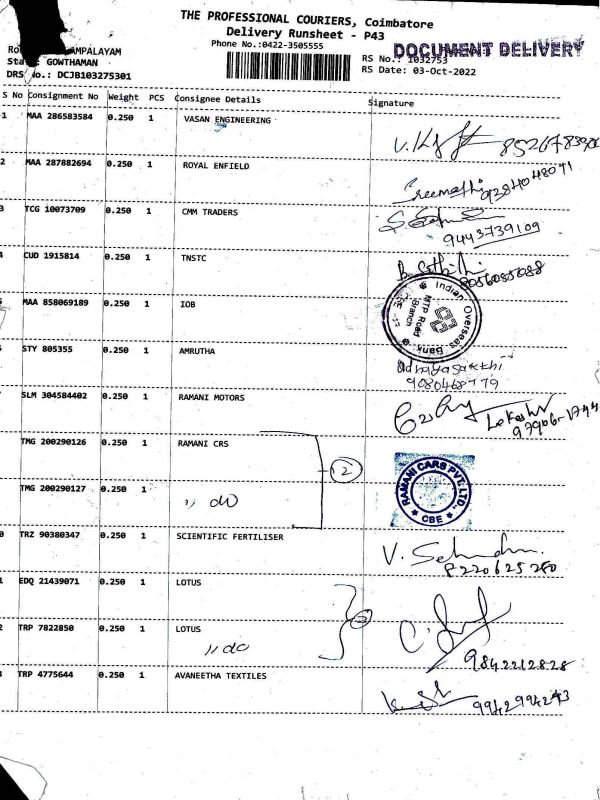 THE PROFESSIONAL COURIERS, Coimbatore
Delivery Runsheet - P43
Phone No.:0422-3505555
DOCUMENT DELIVERY
AMPALAYAM
RS No.: 1032753
GOWTHAMAN
RS Date: 03-Oct-2022
DRS No.: DCJB103275301
S No Consignment No Weight PCS Consignee Details Signature
1 MAA 286583584 0.250 1 VASAN ENGINEERING
2 MAA 287882694 0.250 1 ROYAL ENFIELD
3 TCG 10073709 0.250 1 CMM TRADERS
9443739109
4 CUD 1915814 0.250 1 TNSTC
8056085088
MAA 858069189 0.250 1 IOB
Indian Overseas Bank
MTP Road
Branch
CBE
STY 805355 0.250 1 AMRUTHA
SLM 304584402 0.250 1 RAMANI MOTORS
TMG 200290126 0.250 1 RAMANI CRS
2
RAMANI CARS PVT. LTD.
CBE
TMG 200290127 0.250 1 ,, do
0 TRZ 90380347 0.250 1 SCIENTIFIC FERTILISER
8220625280
1 EDQ 21439071 0.250 1 LOTUS
2 TRP 7822850 0.250 1 LOTUS
,, do
9842212828
3 TRP 4775644 0.250 1 AVANEETHA TEXTILES
9942994243